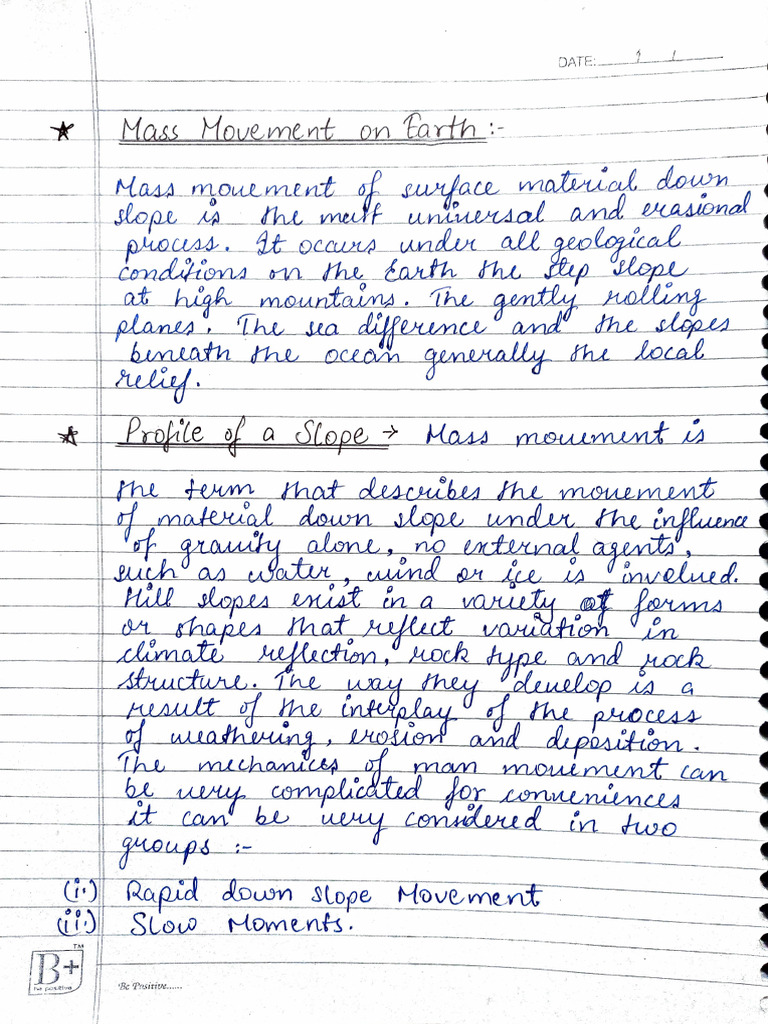 DATE:
Mass Movement on Earth :-
Mass movement of surface material down
slope is the mest universal and erasional
process. It occurs under all geological
conditions on the Earth the step slope
at high mountains. The gently rolling
planes. The sea difference and the slopes
beneath the ocean generally the local
relief.
Profile of a Slope → Mass movement is
the term that describes the movement
of material down slope under the influence
of gravity alone, no external agents,
such as water, wind or ice is involved.
Hill slopes exist in a variety of forms
or shapes that reflect variation in
climate reflection, rock type and rock
structure. The way they develop is a
result of the interplay of the process
of weathering, erosion and deposition.
The mechanices of man movement can
be very complicated for conveniences
it can be very considered in two
groups :-
(i.) Rapid down slope Movement
(ii.) Slow Moments.
B+ TM
be positive
Be Positive......